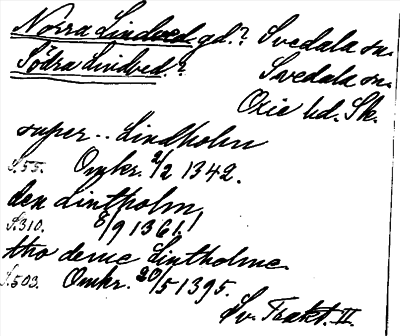 Norra Lindved gd.? Svedala sn.
Södra Lindved.? Svedala sn.
Oxie hd. Sk.
super .. Lindholm
S.55. Omkr. 2/2 1342.
den Lintholm,
S.310. 8/9 1361.
tho deme Lintholme.
S.503. Omkr. 20/5 1395.
Sv. Trakt. II.